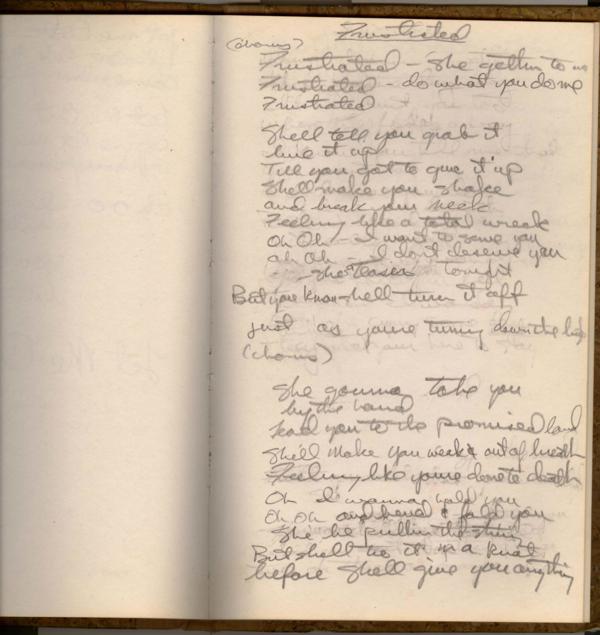 Frustrated
(chorus)
Frustrated - She gettin to me
Frustrated - do what you do me
Frustrated
Shell tell you grab it
live it up
Till you got to give it up
Shell make you shake
and break your neck
Feeling like a total wreck
Oh Oh - I want to save you
ah Oh - I don't deserve you
She Teases tonight
But you know shell turn it off
just as youre turning down the
(chorus)
She gonna take you
by the hand
lead you to the promised land
She'll make you weak & out of breath
Feeling like youre done to death
Oh I wanna hold you
Oh Oh and bend & fold you
She be pullin the string
But shell tie it in a knot
before shell give you anything